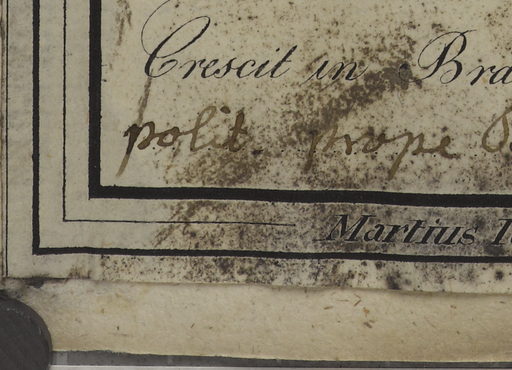 Crescit in Bra
polit. prope S
Martius I